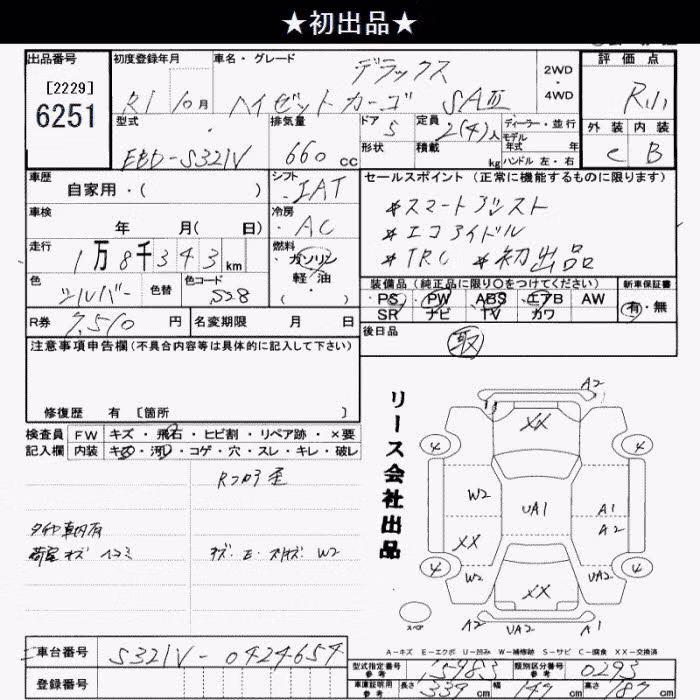 ★初出品★
出品番号
[2229]
6251
初度登録年月
R1 10月
車名・グレード
デラックス
ハイゼットカーゴ SAⅢ
2WD
4WD
評価点
R
外装 内装
C B
型式
EBD-S321V
排気量
660 cc
ドア
5
形状
定員
2(4)人
積載
kg
ディーラー・並行
モデル
年式 年
ハンドル 左・右
車歴
自家用・( )
シフト
IAT
セールスポイント (正常に機能するものに限ります)
*スマートアシスト
*エコアイドル
*TRC *初出品
車検
年 月( 日)
冷房
AC
走行
1万8千343km
燃料
ガソリン
軽・油
( )
色
シルバー
色替
色コード
S28
装備品 (純正品に限り○をつけてください)
PS PW ABS エアB AW
SR ナビ TV カワ
新車保証書
有・無
R券 7,510 円
名変期限 月 日
後日品
取
注意事項申告欄(不具合内容等は具体的に記入して下さい)
修復歴 有 〔箇所 〕
検査員 FW キズ・飛石・ヒビ割・リペア跡・×要
記入欄 内装 キズ・汚レ・コゲ・穴・スレ・キレ・破レ
タイヤ車内有
荷室キズ ヘコミ
W2
リース会社出品
A2
XX
4 4
W2 UA1 A1
A2
XX
4 4
W2 UA2
XX
スペア
A2 UA2 A1
A-キズ E-エクボ U-凹み W-補修跡 S-サビ C-腐食 XX-交換済
車台番号 S321V-0424654
登録番号
型式指定番号
参考
15983
類別区分番号
参考
0293
車庫証明用
参考
長さ 339cm 幅 147cm 高さ 189cm